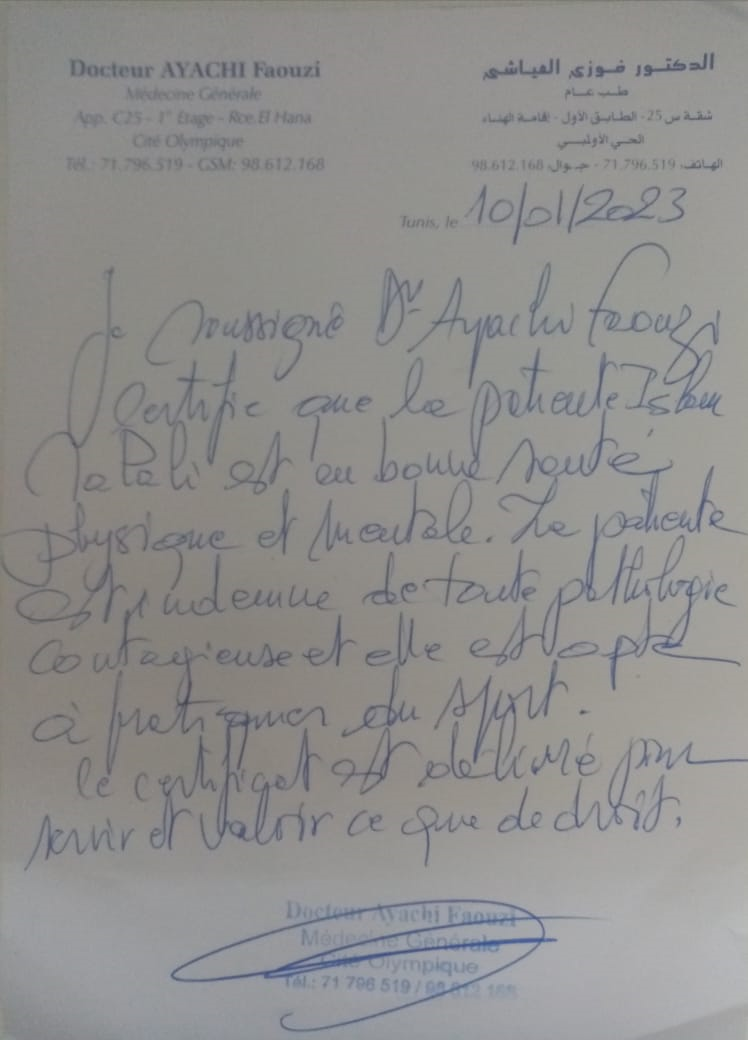 Docteur AYACHI Faouzi
Médecine Générale
App. C25 - 1° Etage - Rce.El Hana
Cité Olympique
Tél.: 71.796.519 - GSM: 98.612.168
الدكتور فوزي العياشي
طب عام
شقة س 25 - الطابق الأول - إقامة الهناء
الحي الأولمبي
الهاتف: 71.796.519 - جوال: 98.612.168
Tunis, le 10/01/2023
Je soussigné Dr Ayachi Faouzi
certifie que la patiente Islem
est en bonne santé
physique et mentale. La patiente
est indemne de toute pathologie
contagieuse et elle est apte
à pratiquer du sport.
le certificat est délivré pour
servir et valoir ce que de droit.
Docteur Ayachi Faouzi
Médecine Générale
Cité Olympique
Tél.: 71 796 519 / 98 612 168